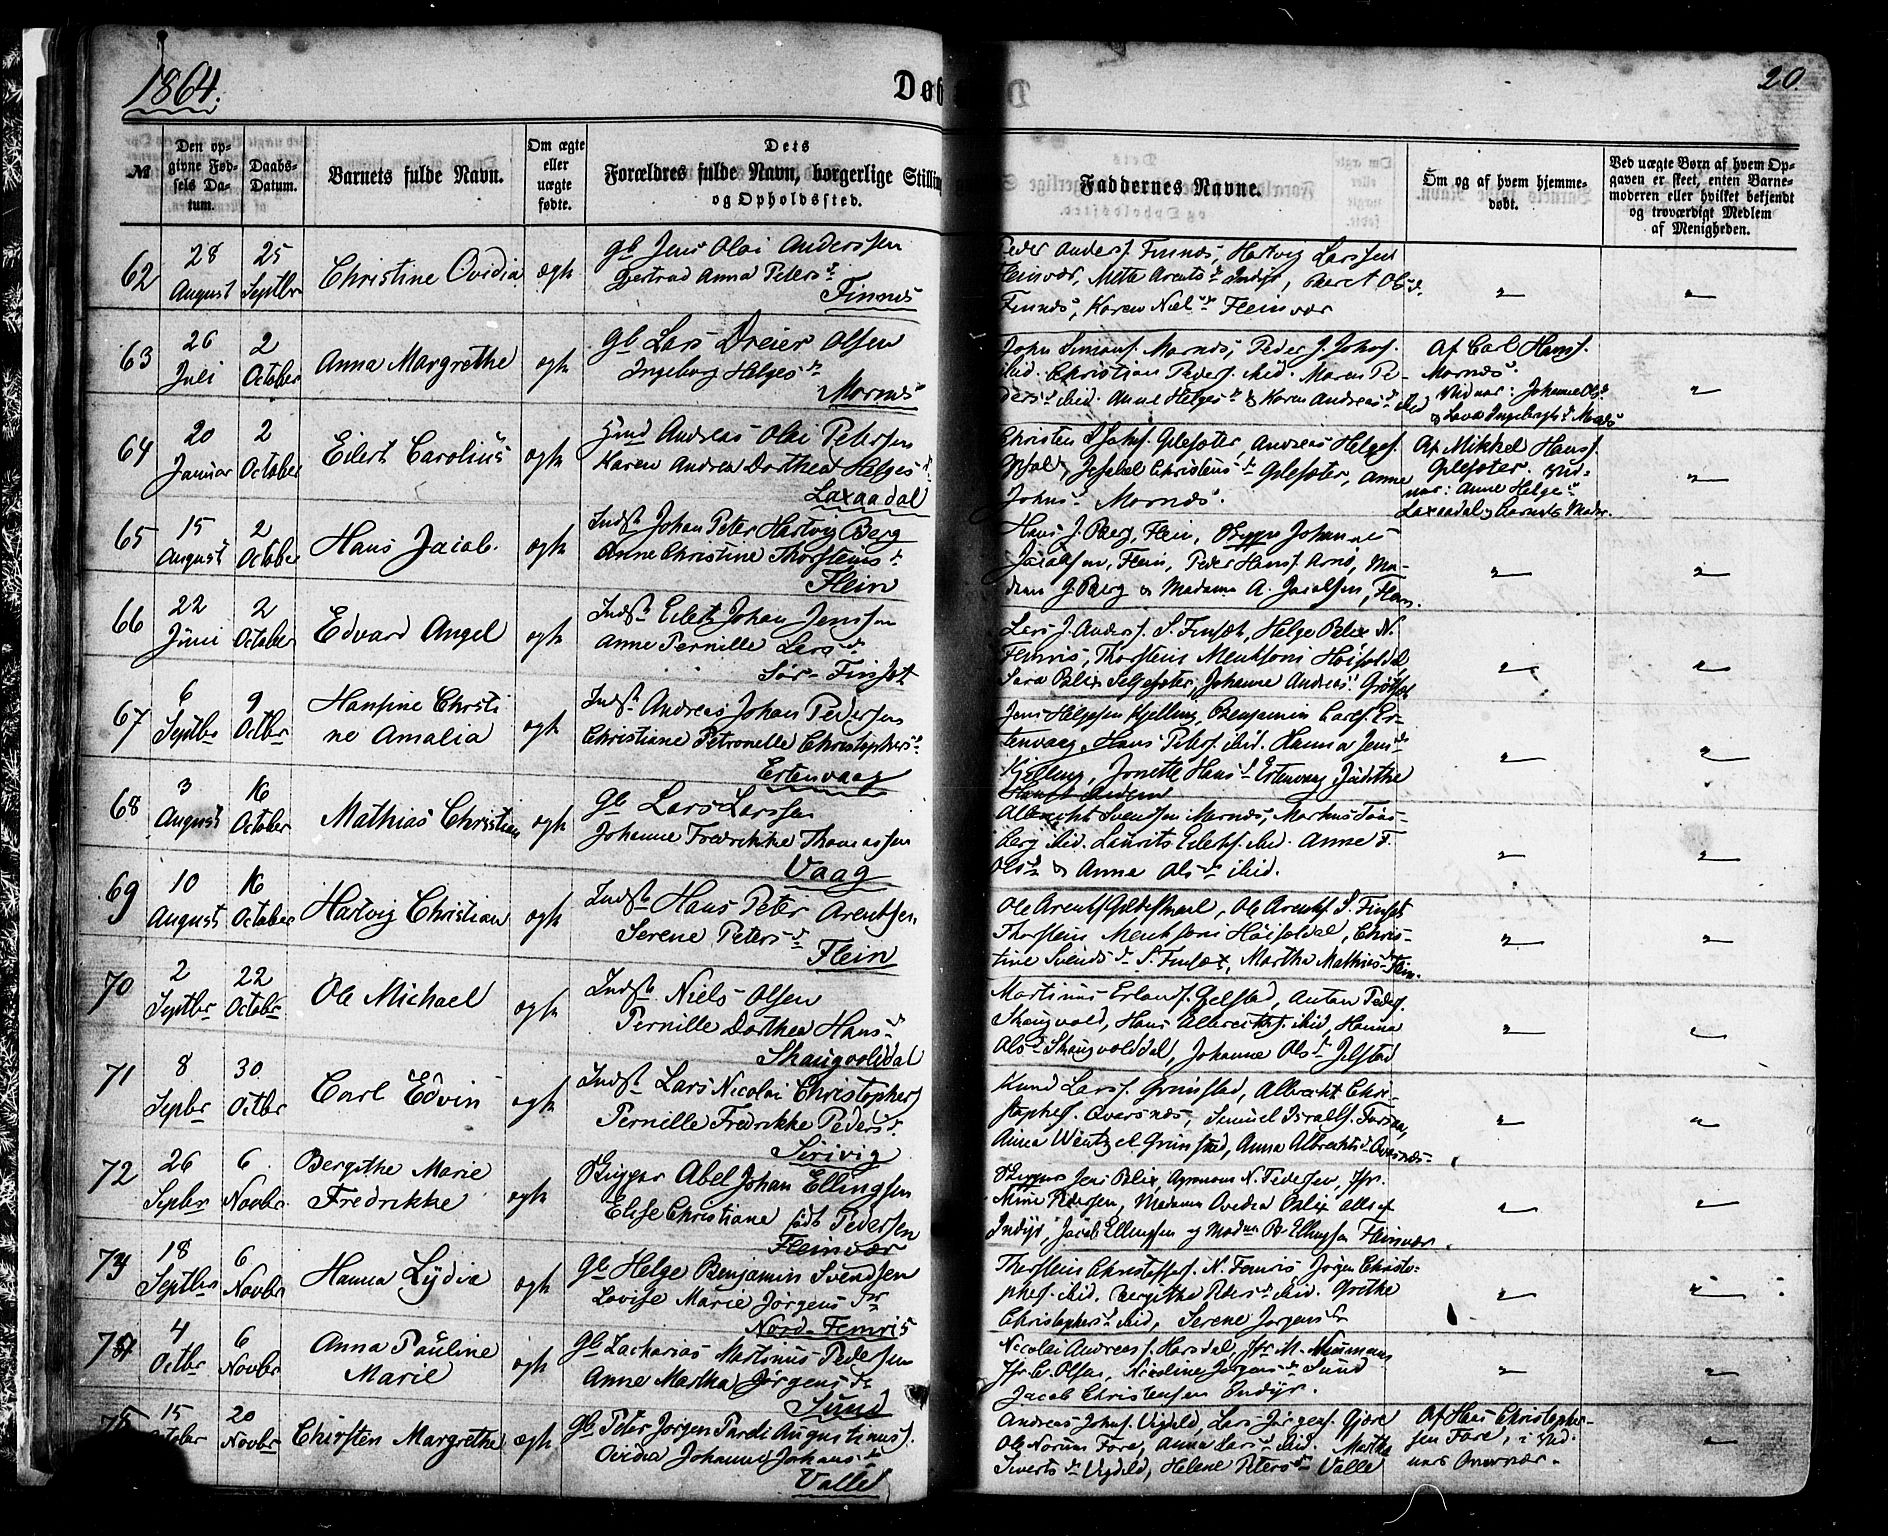 1864.
Døb
20.
№
Den op-
givne Fød-
sels Da-
tum.
Daabs-
Datum.
Barnets fulde Navn.
Om ægte
eller
uægte
fødte.
Dets
Forældres fulde Navn, borgerlige Stilling
og Opholdssted.
Faddernes Navne.
Om og af hvem hjemme-
døbt.
Ved uægte Børn af hvem Op-
gaven er skeet, enten Barne-
moderen eller hvilket bekjendt
og troværdigt Medlem
af Menigheden.
62
28
August
25
Septbr
Christine Ovidia
ægte
Gb Jens Olai Anderssen
Gertrud Anna Peters d
Finnes
Peder Anders. Finnes, Hartvig Larssen
Fleinvær, Mette Arents d Indyr,
Finnes, Karen Niels d Fleinvær
63
26
Juli
2
October
Anna Margrethe
ægte
Gb Lars Dreier Olsen
Ingeborg Helges d
Mornes
John Simons. Mornes, Peder J. Johns.
ibid. Christian Peders. ibid. Maren Pe-
ders d ibid. Anne Helges d & Karen Andreas d ibid
Af Carl Hans.
Mornes.
Vidner: Johanne Ols d
64
20
Januar
2
October
Eilert Carolius
ægte
Andreas Olai Petersen
Karen Andrea Dorthea Helges d
Laxaadal
Christen Johs. Gleseter, Andreas Helges.
Jesabel Christens d Gleseter, Anne
Johns d Mornes.
Af Mikkel Hans.
Gleseter. Vid-
ner: Anne Helges d
Laxaadal og Barnets Moder.
65
15
August
2
October
Hans Jacob.
ægte
Indst. Johan Peter Hartvig Berg
Anne Christine Thorsteins d
Flein
Hans J. Berg, Flein, Johan
Jacobsen, Flein, Peder Hans. Arnø, Ma-
dam G. Berg & Madame A. Jacobsen, Flein.
66
22
Juni
2
October
Edvard Angel
ægte
Indst. Eilert Johan Jenssen
Anne Pernille Lars d
Sør-Finset
Lars J. Anders. S. Finsæt, Helge Blix N.
Femris, Thorstein Høifoldal
Sara Blix Selgesøter, Johanne Andreas d
67
6
Septbr
9
Octbr
Hansine Christi
ne Amalia
ægte
Indst. Andreas Johan Pedersen
Christiane Petronelle Christophers d
Ertenvaag
Jens Helgesen Kjelling, Benjamin Carls. Er-
tenvaag, Hans Peters. ibid. Hanna Jens d
Kjelling, Jonette Hans d Ertenvaag, Judithe
68
3
August
16
October
Mathias Christian
ægte
Gb Lars Larssen
Johanne Fredrikke Thomassen
Vaag
Albrecht Svendsen Mornes, Markus Taas-
berg ibid. Laurits Eilerts. ibid. Anne F.
Ols d & Anna Ols d ibid.
69
10
August
16
October
Hartvig Christian
ægte
Indst. Hans Peter Arentsen
Serene Peters d
Flein
Ole Arents. Gildeskaal, Ole Arents. S. Finset
Thorstein Høifoldal, Chris-
tine Svends d S. Finsæt, Martha Mathias d Flein.
70
2
Septbr
22
Octobr
Ole Michael
ægte
Indst. Niels Olsen
Pernille Dorthea Hans d
Skaugvolddal
Martinus Erlands. Gjelstad, Anton Peders.
Skaugvold, Hans Albrechts. ibid, Hanna
Ols d Skaugvolddal, Johanne Ols d Jelstad
71
8
Sepbr
30
Octbr
Carl Edvin
ægte
Indst. Lars Nicolai Christophers.
Pernille Fredrikke Peders d.
Sørivig
Knud Lars. Grimstad, Albrecht Chri-
stophs. Qvarsnes, Simuel Israels.
Anna Wentzel Grimstad, Anna Albrechts d Qvarsnes.
72
26
Sepbr
6
Novbr
Bergithe Marie
Fredrikke
ægte
Bygger Abel Johan Ellingsen
Elise Christiane født Pedersen
Fleinvær
Jens Blix, N. Pedersen, Jfr.
Mine Pedersen, Madame Ovidia Blix alle af
Indyr, Jacob Ellingsen og Madme B. Ellingsen Fleinvær.
73
18
Septbr
6
Novbr
Hanna Lydia
ægte
Gb Helge Benjamin Svendsen
Lovise Marie Jørgens Dr
Nord-Femris
Thorstein Christoffers. N. Femris Jørgen Christo-
phers. ibid. Bergitha Peders d ibid. Grethe
Christophers d ibid, Serene Jørgens d
74
4
Octbr
6
Novbr
Anna Pauline
Marie
ægte
Gb Zacharias Martinus Pedersen
Anne Martha Jørgens Dr
Sund
Nicolai Andreas. Horsdal, Jfr M. Neumann
Jfr C. Olsen, Nicoline Jørgens d Sund
Jacob Christensen Indyr.
75
15
October
20
Novbr
Chirsten Margrethe
ægte
Gb Peter Jørgen Pareli Augustinus.
Ovidia Johanne Johans d
Valle
Andreas Johns. Vigdel, Lars Jørgens. Gjære
Ole Norum Fore, Anna Lars d ibid. Martha
Siverts d Vigdel, Helene Peters d Valle
Af Hans Christopher-
sen Fore, i Vid-
ners Overvær.